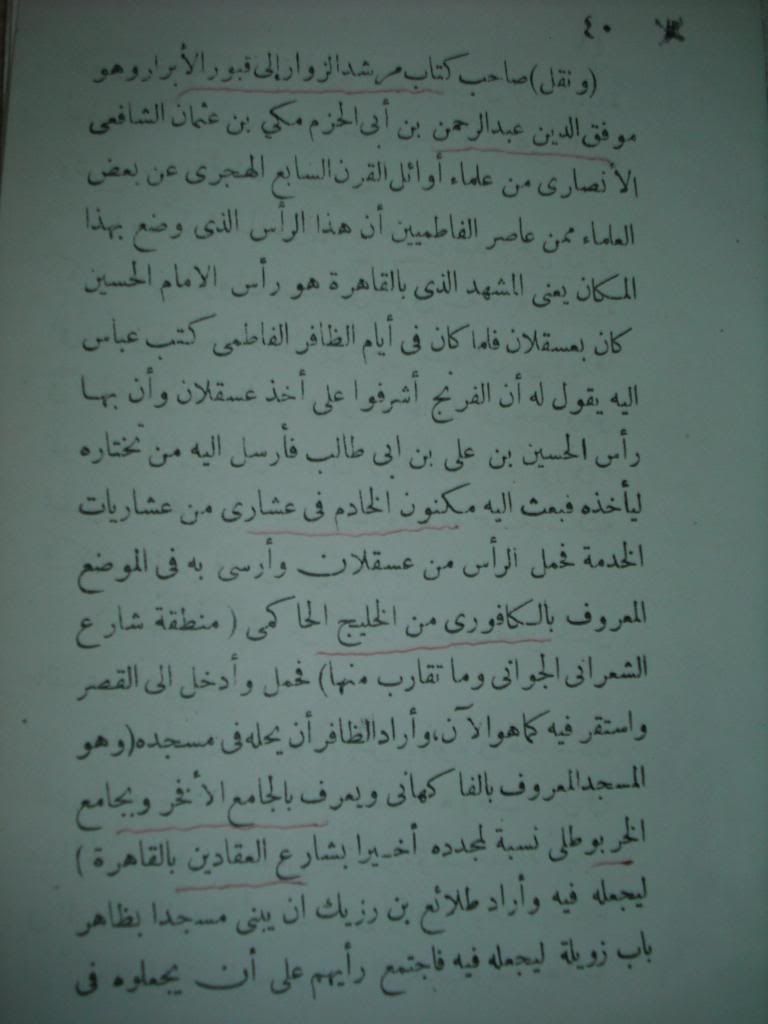 ٤٠
(ونقل) صاحب كتاب مرشد الزوار إلى قبور الأبرار وهو
موفق الدين عبد الرحمن بن أبى الحزم مكي بن عثمان الشافعى
الأنصارى من علماء أوائل القرن السابع الهجرى عن بعض
العلماء ممن عاصر الفاطميين أن هذا الرأس الذى وضع بهذا
المكان يعنى المشهد الذى بالقاهرة هو رأس الامام الحسين
كان بعسقلان فلما كان فى أيام الظافر الفاطمى كتب عباس
اليه يقول له أن الفرنج أشرفوا على أخذ عسقلان وأن بها
رأس الحسين بن على بن ابى طالب فأرسل اليه من تختاره
ليأخذه فبعث اليه مكنون الخادم فى عشارى من عشاريات
الخدمة فحمل الرأس من عسقلان وأرسى به فى الموضع
المعروف بالكافورى من الخليج الحاكمى ( منطقة شارع
الشعرانى الجوانى وما تقارب منها) فحمل وأدخل الى القصر
واستقر فيه كما هو الآن، وأراد الظافر أن يحله فى مسجده (وهو
المسجد المعروف بالفاكهانى ويعرف بالجامع الأفخر وبجامع
الخربوطلى نسبة لمجدده أخيرا بشارع العقادين بالقاهرة )
ليجعله فيه وأراد طلائع بن رزيك ان يبنى مسجدا بظاهر
باب زويلة ليجعله فيه فاجتمع رأيهم على أن يجعلوه فى